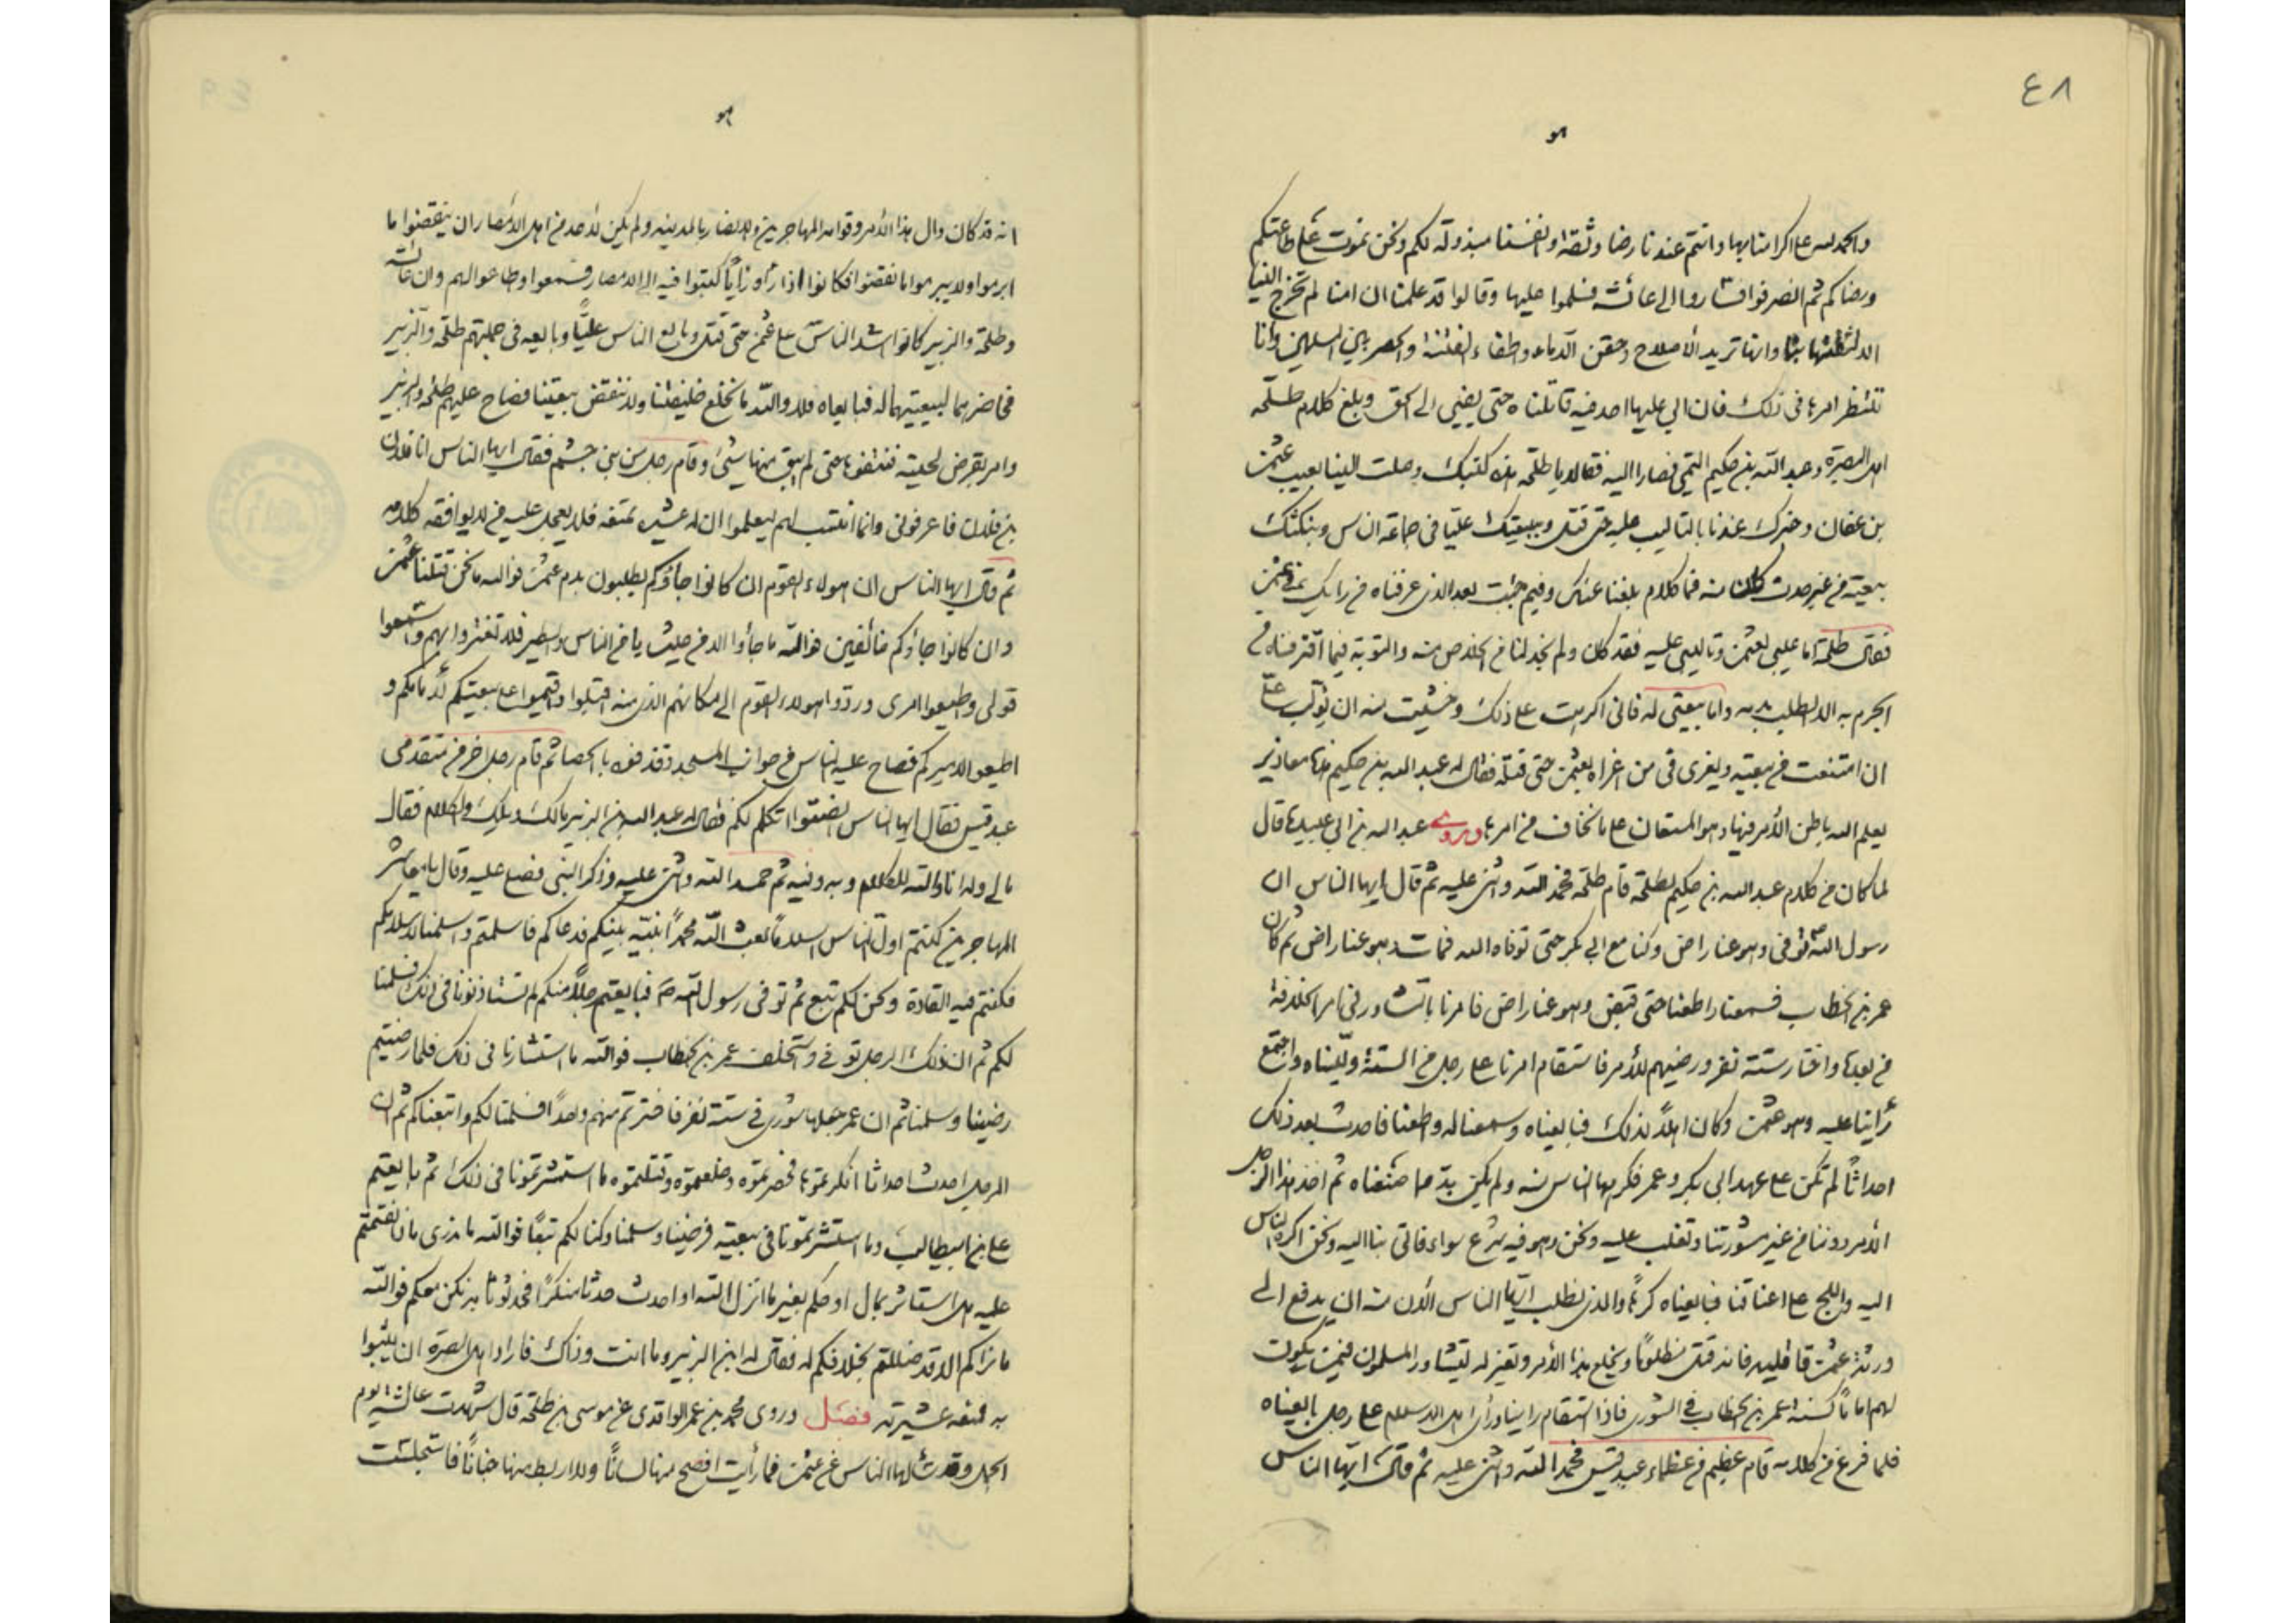 ٤٨
هو
والحمد لله على اكرامنا بها وانتم عندنا رضا وثقة وانفسنا مبذولة لكم ونحن نموت على طاعتكم
ورضاكم ثم انصرفوا فساروا الى عائشة فسلموا عليها وقالوا قد علمنا ان امنا لم تخرج الينا
الا لثقتها بنا وانها تريد الاصلاح وحقن الدماء واطفاء الفتنة بين المسلمين وانا
ننتظر امرها في ذلك فان ابى عليها احد فيه قاتلناه حتى يفيئ الى الحق وبلغ كلام طلحة
اهل البصرة وعبد الله بن حكيم التميمي فصارا اليه فقالا يا طلحة هذه كتبك وصلت الينا بعيب عثمن
بن عفان وخبرك عندنا بالتاليب عليه حتى قتل وببيعتك عليا في جماعة الناس وبنكثك
بيعته من غير حدث كان منه فما كلام بلغنا عنك وفيم جئت بعد الذي عرفناه من رايك في عثمن
فقال طلحة اما عيبي لعثمن وتاليبي عليه فقد كان ولم نجد لنا من الخلاص منه والتوبة فيما اقترفناه من
الجرم به الا الطلب بدمه واما بيعتي له فاني اكرهت على ذلك وخشيت منه ان يؤلب علي
ان امتنعت من بيعته ويغرى في من اغراه بعثمن حتى قتله فقال له عبد الله بن حكيم هذه معاذير
يعلم الله باطن الأمر فيها وهو المستعان على ما نخاف من امرها وروى عبد الله بن ابي عبيدة قال
لما كان من كلام عبد الله بن حكيم لطلحة قام طلحة فحمد الله واثنى عليه ثم قال ايها الناس ان
رسول الله توفى وهو عنا راض وكنا مع ابي بكر حتى توفاه الله فمات وهو عنا راض ثم كان
عمر بن الخطاب فسمعنا واطعنا حتى قبض وهو عنا راض فامرنا بالتشاور في امر الخلافة
من بعده واختار ستة نفر ورضيهم للأمر فاستقام امرنا على رجل من الستة وليناه واجتمع
رأينا عليه وهو عثمن وكان اهلاً لذلك فبايعناه وسمعنا له واطعنا فاحدث بعد ذلك
احداثاً لم تكن على عهد ابي بكر وعمر فكرهها الناس منه ولم يكن بد مما صنعناه ثم اخذ هذا الرجل
الأمر دوننا من غير مشورتنا وتغلب عليه ونحن وهو فيه شرع سواء فاتى بنا اليه ونحن اكره الناس
اليه واللج على اعناقنا فبايعناه كرهاً والذي نطلب ايها الناس الآن منه ان يدفع الى
ورثة عثمن قاتليه فانه قتل مظلوماً ويخلع هذا الأمر ويعتزله ليتشاور المسلمون فيمن يكون
لهم اماماً كسنة عمر بن الخطاب في الشورى فاذا استقام راينا ورأى اهل الاسلام على رجل بايعناه
فلما فرغ من كلامه قام عظيم من عظماء عبد قيس فحمد الله واثنى عليه ثم قال ايها الناس
هو
انه قد كان وال هذا الأمر وقوامه المهاجرين والانصار بالمدينة ولم يكن لأحد من اهل الأمصار ان ينقضوا ما
ابرموا ولا يبرموا ما نقضوا فكانوا اذا رأوا رأياً كتبوا فيه الى الامصار فسمعوا واطاعوا لهم وان عائشة
وطلحة والزبير كانوا اشد الناس على عثمن حتى قتل وبايع الناس علياً وبايعه في جملتهم طلحة والزبير
لبيعتهما له فبايعاه فلا والله ما نخلع خليفتنا ولا ننقض بيعتنا فصاح عليهم طلحة والزبير
وامر بقرض لحيته فنتفوها حتى لم يبق منها شيئ وقام رجل من بني جشم فقال ايها الناس انا فلان
بن فلان فاعرفوني وانما انتسب لهم ليعلموا ان له عشيرة تمنعه فلا يعجل عليه من لا يوافقه كلامه
ثم قال ايها الناس ان هولاء القوم ان كانوا جاؤكم يطلبون بدم عثمن فوالله ما نحن قتلنا عثمن
وان كانوا جاؤكم خائفين فوالله ما جاؤا الا من حيث يامن الناس والطير فلا تغتروا بهم واسمعوا
قولي واطيعوا امري وردوا هولاء القوم الى مكانهم الذي منه اقبلوا واقيموا على بيعتكم لأمامكم و
اطيعوا لاميركم فصاح عليه الناس من جوانب المسجد وقذفوه بالحصا ثم قام رجل اخر من متقدمى
عبد قيس فقال ايها الناس انصتوا اتكلم لكم فقال له عبد الله بن الزبير مالك ويلك والكلام فقال
مالي وله انا والله للكلام وبه وفيه ثم حمد الله واثنى عليه وذكر النبي فصلى عليه وقال يا معاشر
المهاجرين كنتم اول الناس اسلاماً بعث الله محمداً نبيه بينكم فدعاكم فاسلمتم واسلمنا لاسلامكم
فكنتم فيه القادة ونحن لكم تبع ثم توفى رسول الله ص فبايعتم رجلاً منكم لم تستاذنونا في ذلك فسلمنا
لكم ثم ان ذلك الرجل توفى واستخلف عمر بن الخطاب فوالله ما استشارنا في ذلك فلما رضيتم
رضينا وسلمنا ثم ان عمر جعلها شورى في ستة نفر فاخترتم منهم واحداً فسلمنا لكم واتبعناكم ثم ان
الرجل احدث احداثا انكرتموها فحصرتموه وخلعتموه وقتلتموه ما استشرتمونا في ذلك ثم بايعتم
علي بن ابيطالب وما استشرتمونا في بيعته فرضينا وسلمنا وكنا لكم تبعاً فوالله ما ندرى بماذا نقمتم
عليه هل استاثر بمال او حكم بغير ما انزل الله او احدث حدثا منكراً فحدثونا به نكن معكم فوالله
ما نراكم الا قد ضللتم بخلافكم له فقال له ابن الزبير وما انت وذاك فارادا اهل البصرة ان يثبوا
به فمنعه عشيرته فصل وروى محمد بن عمر الواقدى عن موسى بن طلحة قال شهدت عائشة يوم
الجمل وقد سألها الناس عن عثمن فما رأيت افصح منها لساناً ولا اربط منها جناناً فاستجلست